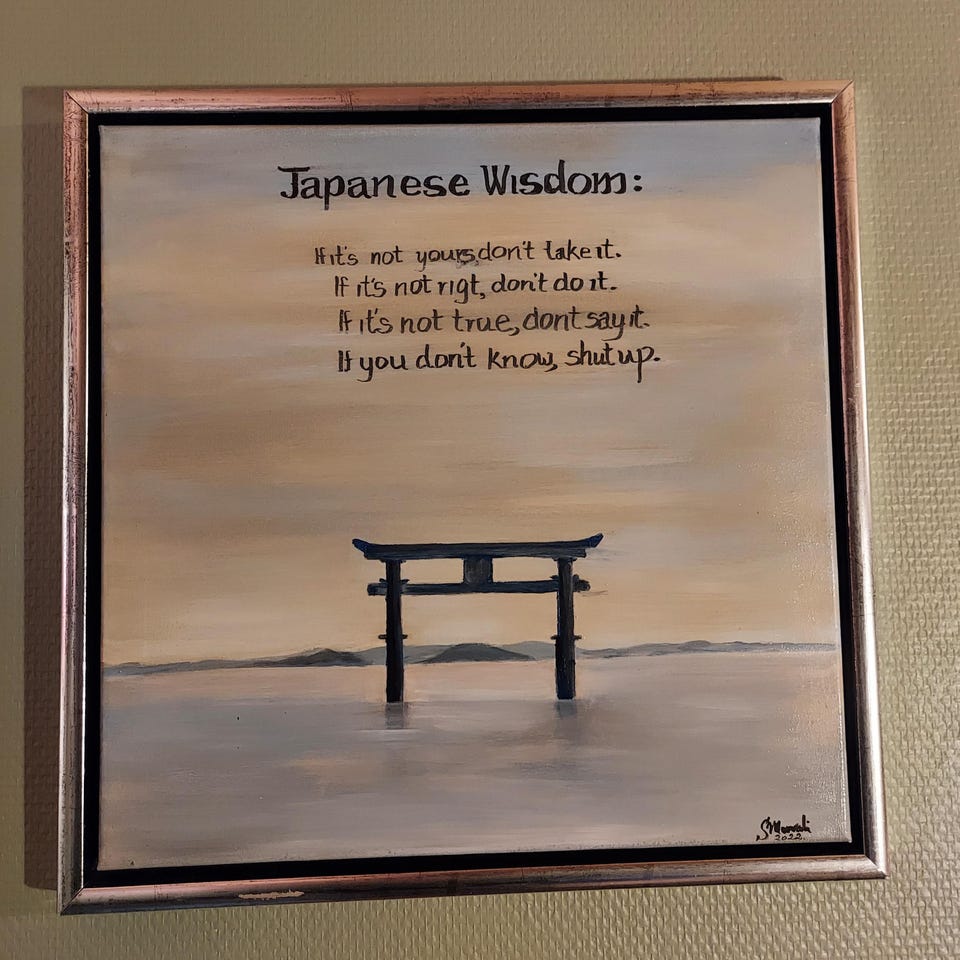 Japanese Wisdom:
If it's not yours, don't take it.
If it's not rigt, don't do it.
If it's not true, dont say it.
If you don't know, shut up.
2022